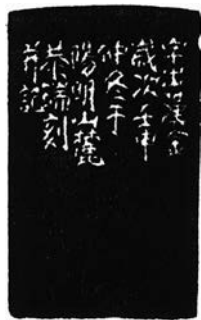 字法漢金
歲次壬申
仲冬于
陽明山麓
恭瑞刻
并記